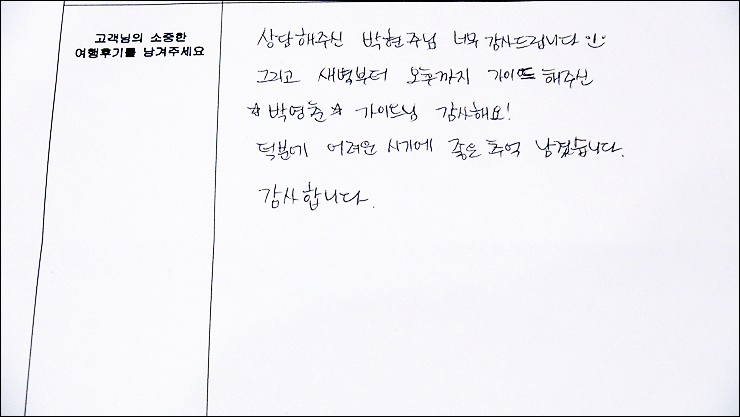 고객님의 소중한
여행후기를 남겨주세요
상담해주신 박현주님 너무 감사드립니다
그리고 새벽부터 오후까지 가이드 해주신
☆박영춘☆ 가이드님 감사해요!
덕분에 어려운 시기에 좋은 추억 남겼습니다.
감사합니다.